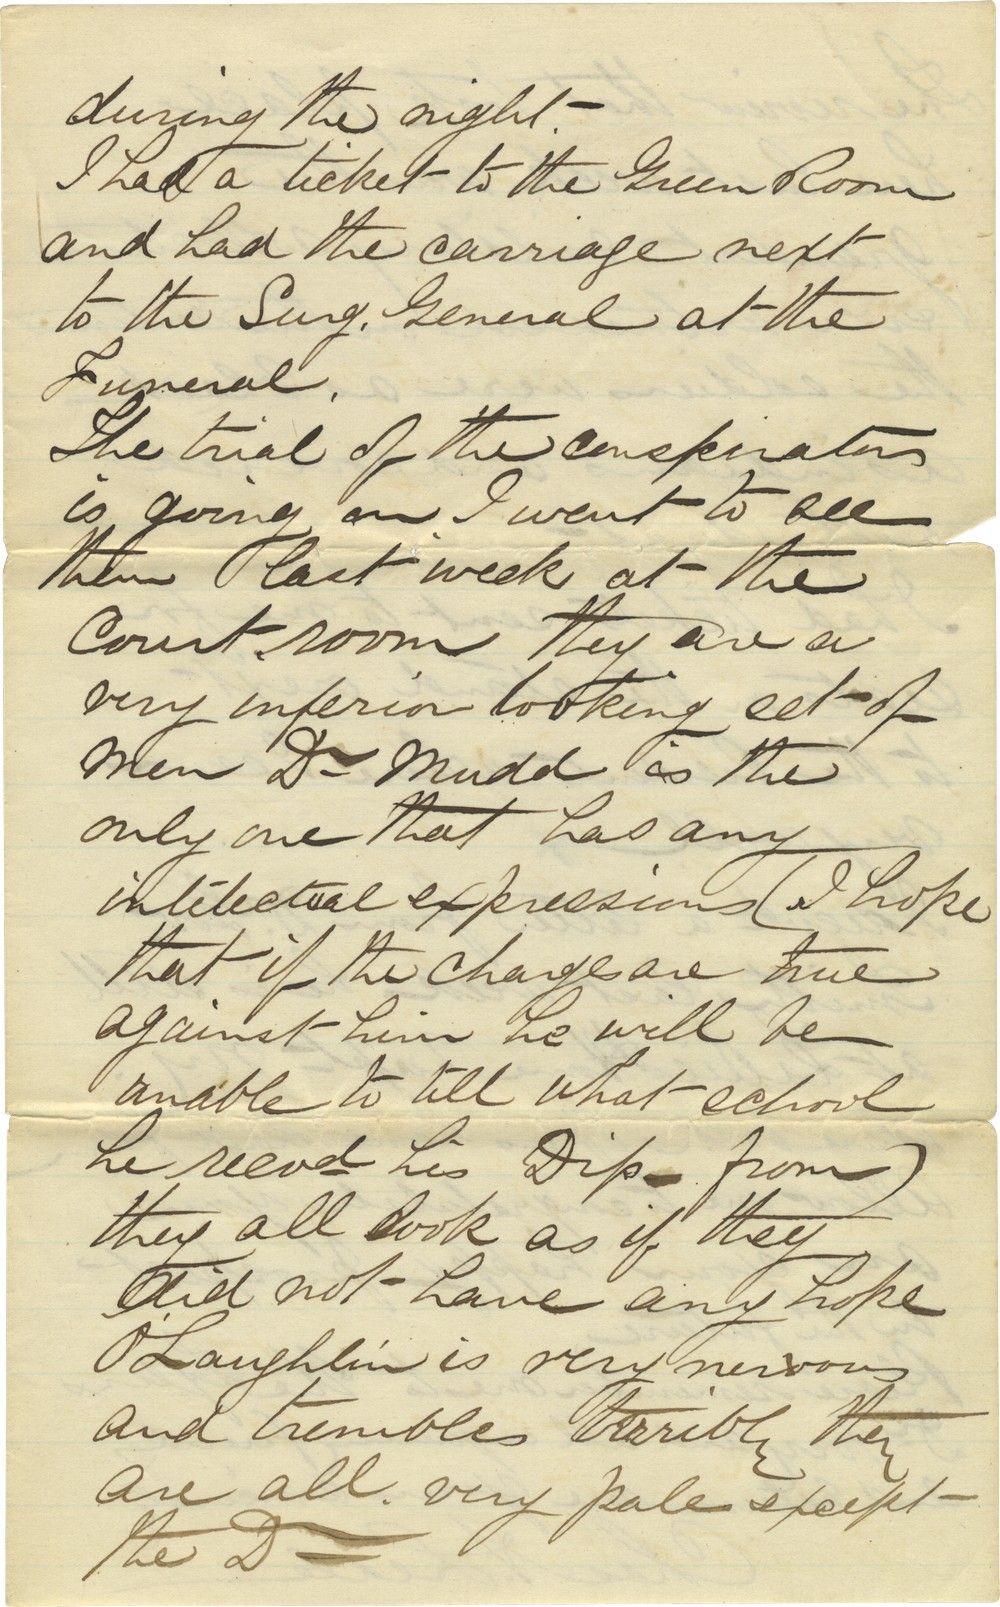 during the night.-
I had a ticket to the Green Room
and had the carriage next
to the Surg. General at the
Funeral.
The trial of the conspirators
is going on I went to see
them last week at the
Court room they are a
very inferior looking set of
men Dr Mudd is the
only one that has any
intelectual expressions (I hope
that if the charges are true
against him he will be
unable to tell what school
he recvd his Dip- from)
they all look as if they
did not have any hope
O'Laughlin is very nervous
and trembles terribly they
are all very pale except
the Dr